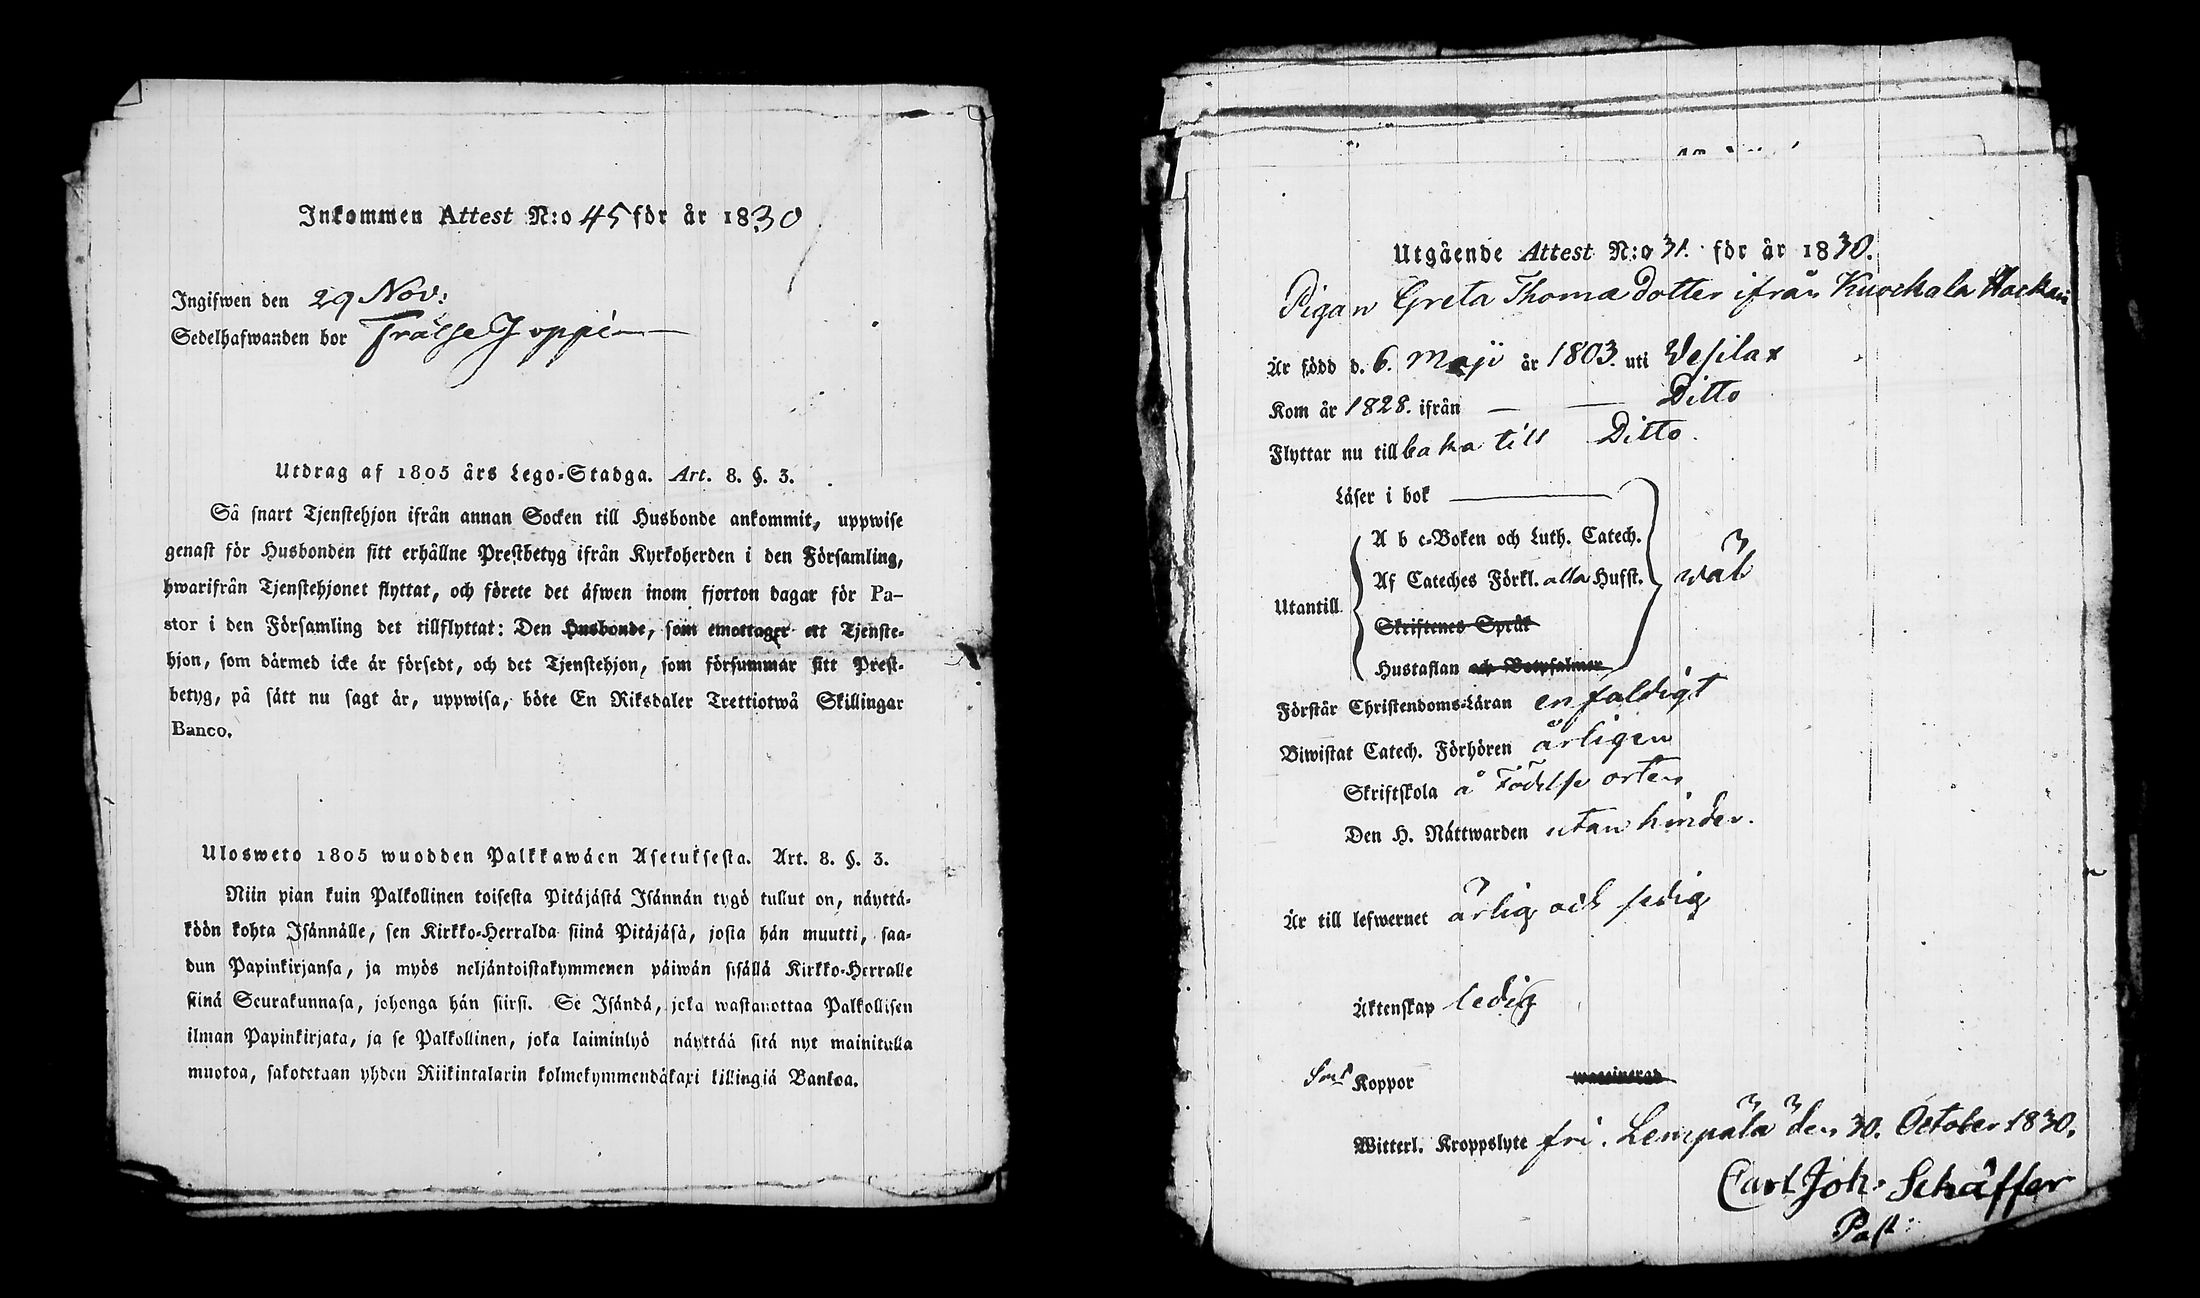 Inkommen Attest N:o 45 för år 1830
Ingifwen den 29 Nov:
Sedelhafwanden bor Frälse Joppi
Utdrag af 1805 års Lego-Stadga. Art. 8. §. 3.
Så snart Tjenstehjon ifrån annan Socken till Husbonde ankommit, uppwise
genast för Husbonden sitt erhållne Prestbetyg ifrån Kyrkoherden i den Församling,
hwarifrån Tjenstehjonet flyttat, och förete det äfwen inom fjorton dagar för Pa-
stor i den Församling det tillflyttat: Den Husbonde, som emottager ett Tjenste-
hjon, som därmed icke är försedt, och det Tjenstehjon, som försummar sitt Prest-
betyg, på sätt nu sagt är, uppwisa, böte En Riksdaler Trettiotwå Skillingar
Banco.
Ulosweto 1805 wuodden Palkkawäen Asetuksesta. Art. 8. §. 3.
Niin pian kuin Palkollinen toisesta Pitäjästä Isännän tygö tullut on, näyttä-
köön kohta Isännälle, sen Kirkko-Herralda siinä Pitäjäsä, josta hän muutti, saa-
dun Papinkirjansa, ja myös neljäntoistakymmenen päiwän sisällä Kirkko-Herralle
siinä Seurakunnasa, johonga hän siirsi. Se Isändä, joka wastanottaa Palkollisen
ilman Papinkirjata, ja se Palkollinen, joka laiminlyö näyttää sitä nyt mainitulla
muotoa, sakotetaan yhden Riikintalarin kolmekymmendäkaxi killingiä Bankoa.
Utgående Attest N:o 31. för år 1830.
Pigan Greta Thomæ Dotter ifrån Kuockala Hackari
Är född d. 6. Maji år 1803. uti Vesilax
Kom år 1828. ifrån — — Ditto
Flyttar nu tillbaka till Ditto.
Läser i bok
A b c-Boken och Luth. Catech.
Af Cateches Förkl. alla Husst. wäl
Utantill
Skriftenes Språk
Hustaflan och Botpsalmer
Förstår Christendoms-Läran enfaldigt
Biwistat Catech. Förhören årligen
Skriftskola å Födelse orten
Den H. Nattwarden utan hinder.
Är till lefwernet ärlig och sedig
Äktenskap ledig
Koppor waccinerad
Witterl. Kroppslyte fri. Lempälä den 30. October 1830.
Carl Joh. Schäffer
Past: